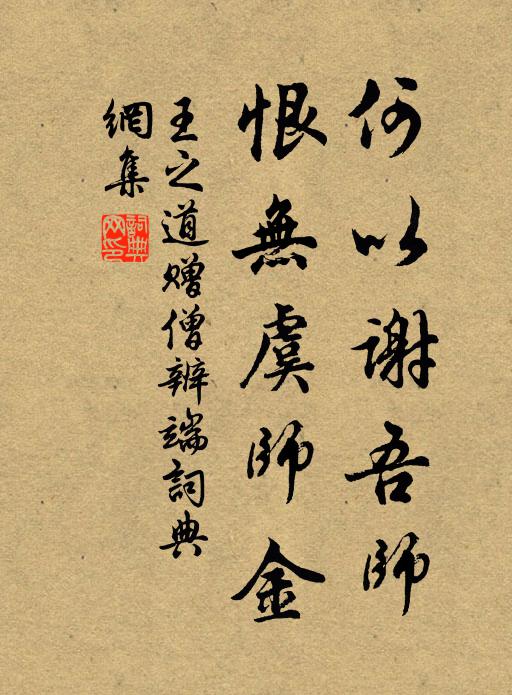 何以謝吾師
恨無虞師金
王之道贈僧辨端詞典
網集
詞典
网印